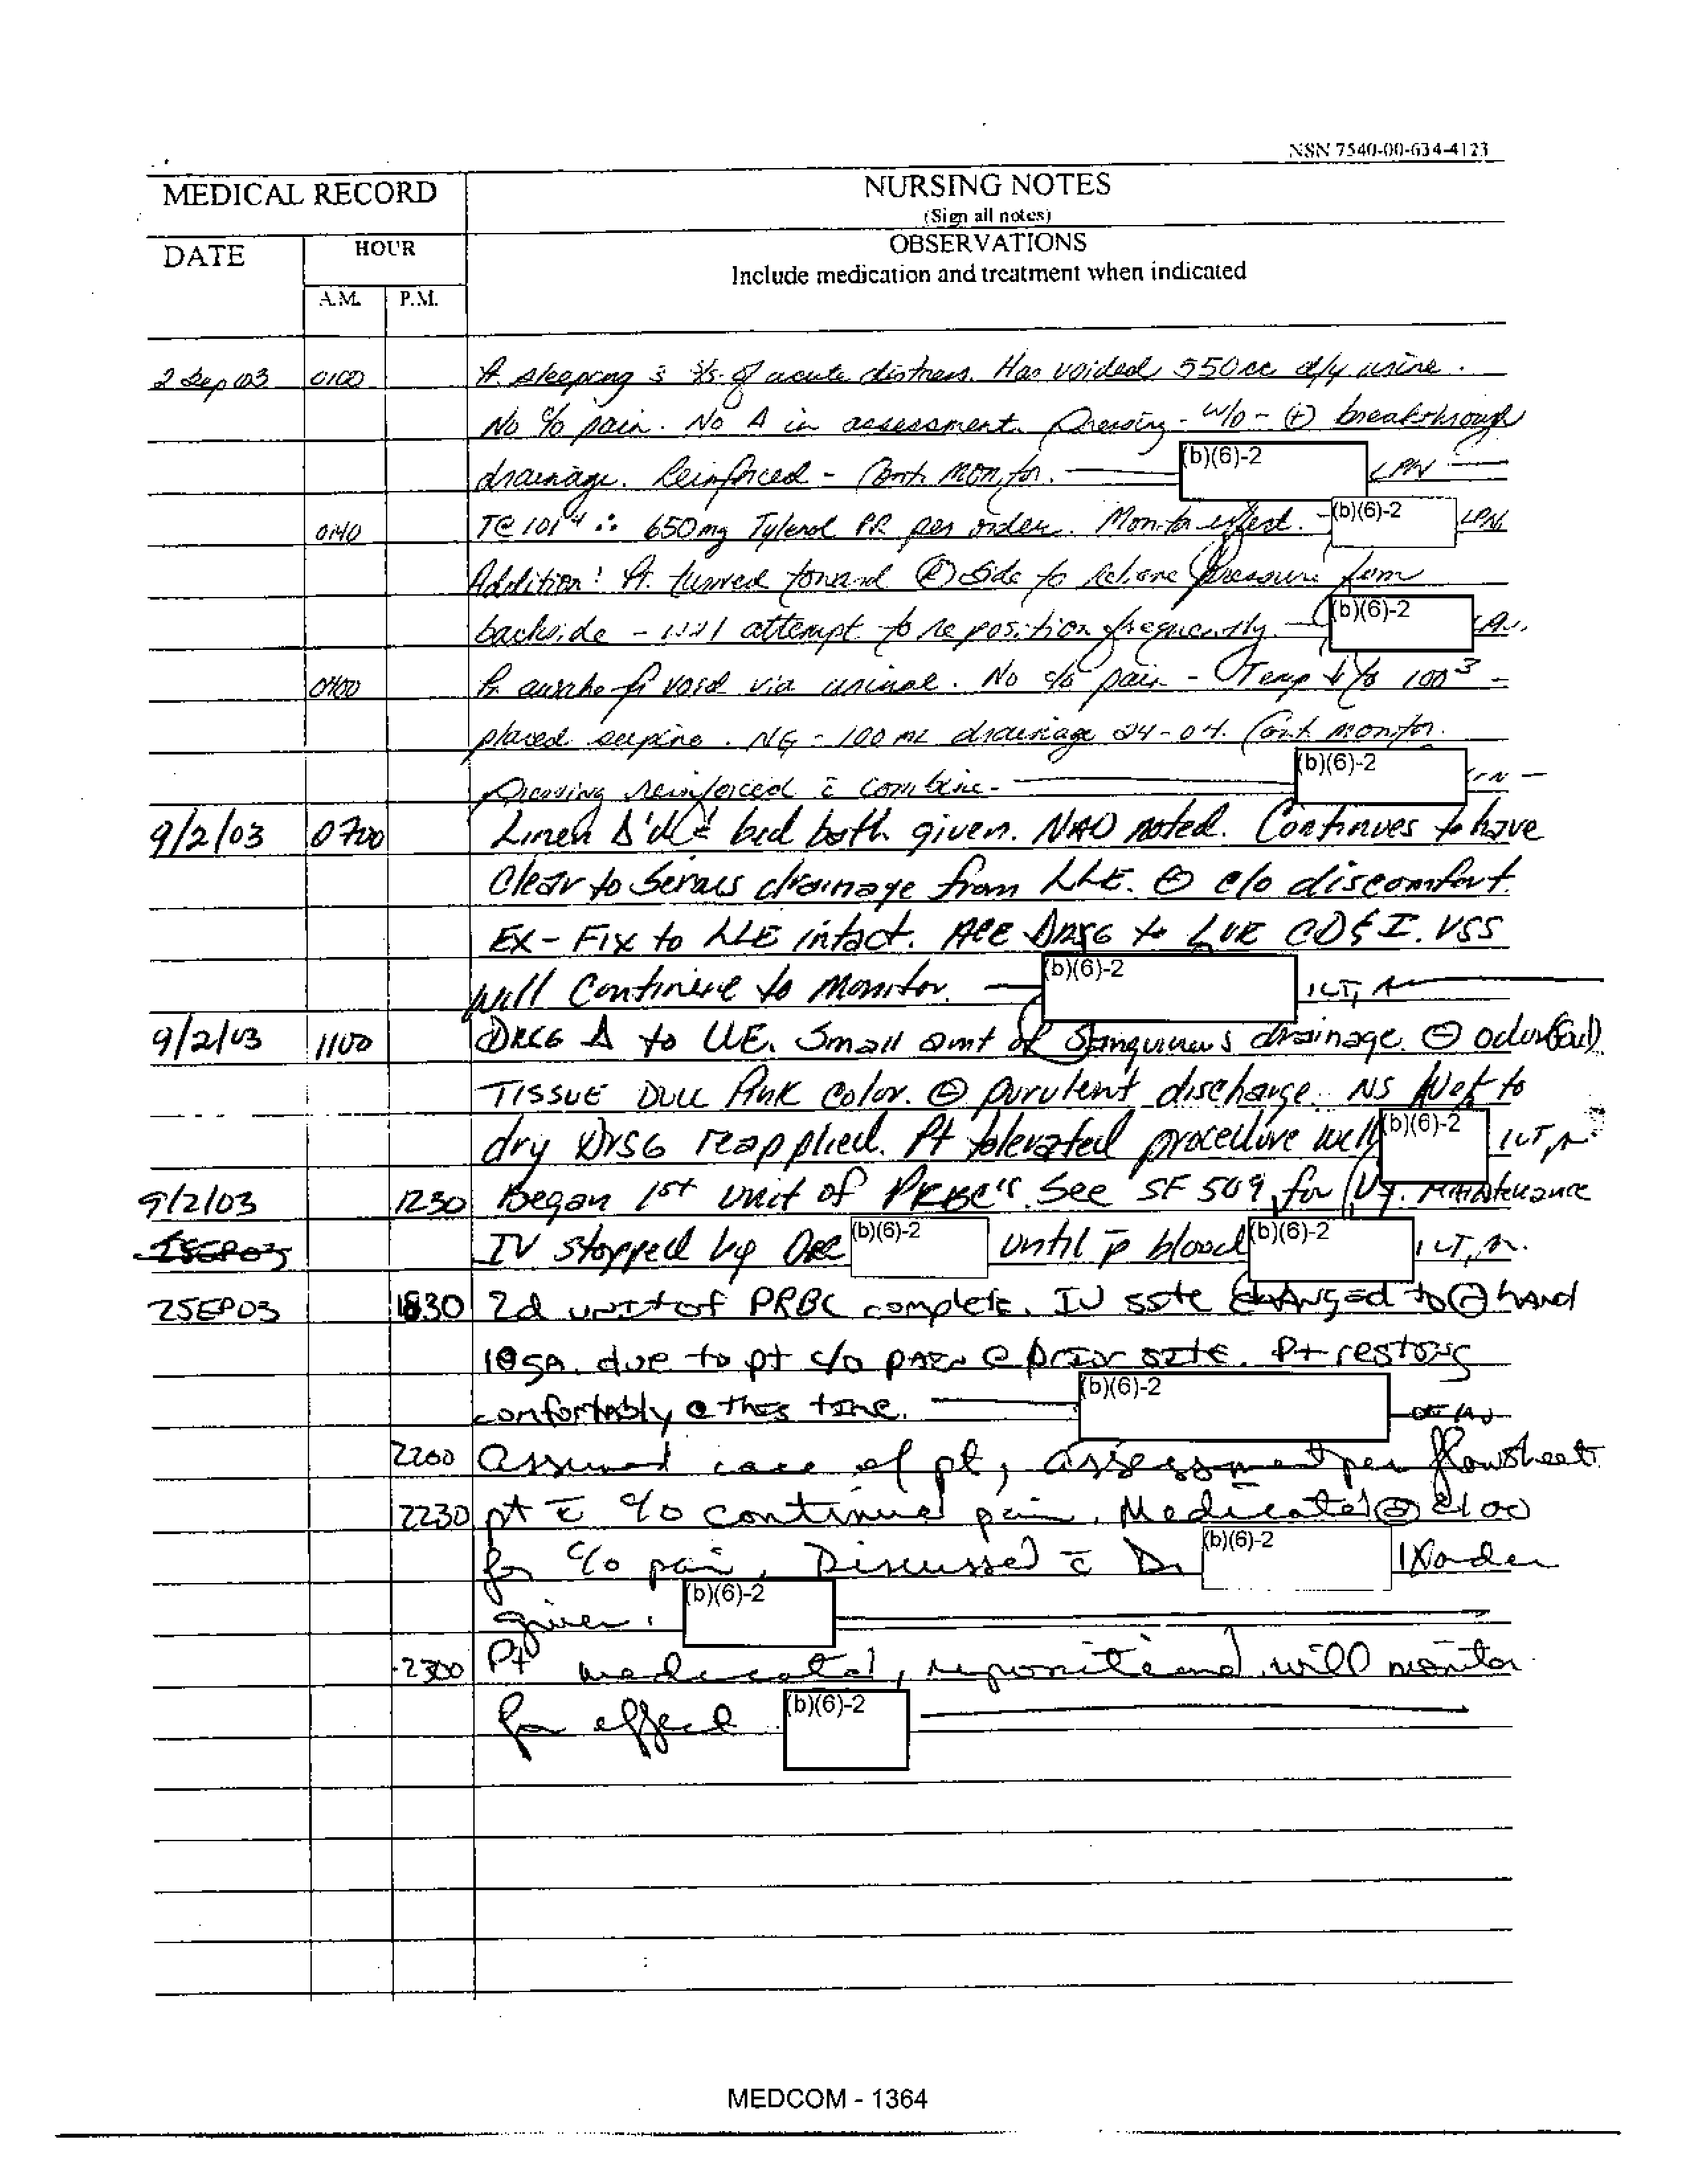 NSN 7540-00-634-4123
MEDICAL RECORD
NURSING NOTES
(Sign all notes)
DATE
HOUR
OBSERVATIONS
Include medication and treatment when indicated
A.M.
P.M.
2 Sep 03 0100 Pt sleeping s̄ s/s of acute distress. Has voided 550cc d/y urine.
No c/o pain. No Δ in assessment. Dressing - w/o - (+) breakthrough
drainage. Reinforced - Cont. monitor. (b)(6)-2 LPN
0140 T@ 101⁴ ∴ 650mg Tylenol PR per order. Monitor effect. (b)(6)-2 LPN
Addition: Pt. turned toward (R) side to relieve pressure from
backside - will attempt to reposition frequently. (b)(6)-2
0400 Pt awake to void via urinal. No c/o pain - Temp ↓ to 100³ -
placed supine. NG - 100 mL drainage 24-04. Cont. monitor.
Dressing reinforced c̄ combine. (b)(6)-2
9/2/03 0700 Linen Δ'd & bed bath given. NAD noted. Continues to have
clear to serous drainage from LLE. ⊖ c/o discomfort.
EX-FIX to LLE intact. ACE DRSG to LUE CD&I. VSS
Will Continue to Monitor. (b)(6)-2 1LT,
9/2/03 1100 DRSG Δ to UE. Small amt of Sanguineous drainage. ⊖ odor (foul)
TISSUE DULL PINK color. ⊖ purulent discharge. NS Wet to
dry DRSG reapplied. Pt tolerated procedure well (b)(6)-2 1LT,
9/2/03 1230 Began 1st unit of PRBC's. See SF 509 for Maintenance
IV stopped by (b)(6)-2 until p̄ blood (b)(6)-2 1LT,
2SEP03 1830 2d unit of PRBC complete. IV site changed to hand
18ga. due to pt c/o pain @ prior site. Pt resting
comfortably @ this time. (b)(6)-2
2200 Assumed care of pt, assessment per flowsheet.
2230 pt c̄ c/o continued pain. Medicated @ 2100
for c/o pain. Discussed c̄ Dr (b)(6)-2 1X order
given. (b)(6)-2
2300 Pt medicated, repositioned, will monitor
for effect (b)(6)-2
MEDCOM - 1364